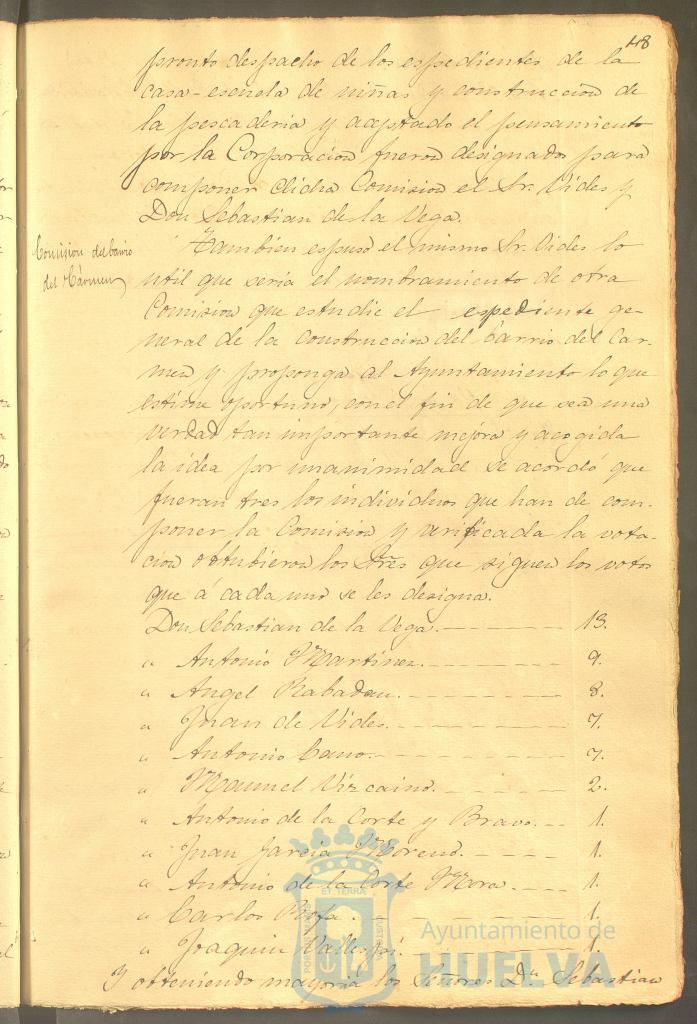 48
pronto despacho de los espedientes de la
casa-escuela de niñas y construccion de
la pescaderia y aceptado el pensamiento
por la Corporacion fueron designados para
componer dicha Comision el Sr. Vides y
Don Sebastian de la Vega.
Comision del barrio
del Cármen
Tambien espuso el mismo Sr. Vides lo
util que seria el nombramiento de otra
Comision que estudie el espediente ge-
neral de la construccion del barrio del Car-
men y proponga al Ayuntamiento lo que
estime oportuno, con el fin de que sea una
verdad tan importante mejora y acogida
la idea por unanimidad se acordó que
fueran tres los individuos que han de com-
poner la Comision y verificada la vota-
cion obtubieron los Sres que siguen los votos
que á cada uno se les designa.
Don Sebastian de la Vega. 13.
" Antonio Martinez. 9.
" Angel Rabadan. 8.
" Juan de Vides. 7.
" Antonio Cano. 7.
" Manuel Vizcaino. 2.
" Antonio de la Corte y Bravo. 1.
" Juan Garcia Moreno. 1.
" Antonio de la Corte Mora. 1.
" Carlos 1.
" Joaquin Vallespí. 1.
Y obteniendo mayoria los Señores Dn Sebastian
ET TERRA
Ayuntamiento de
HUELVA